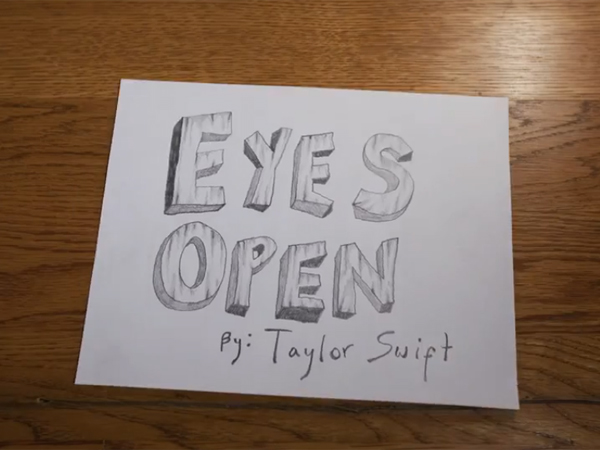 EYES
OPEN
By: Taylor Swift